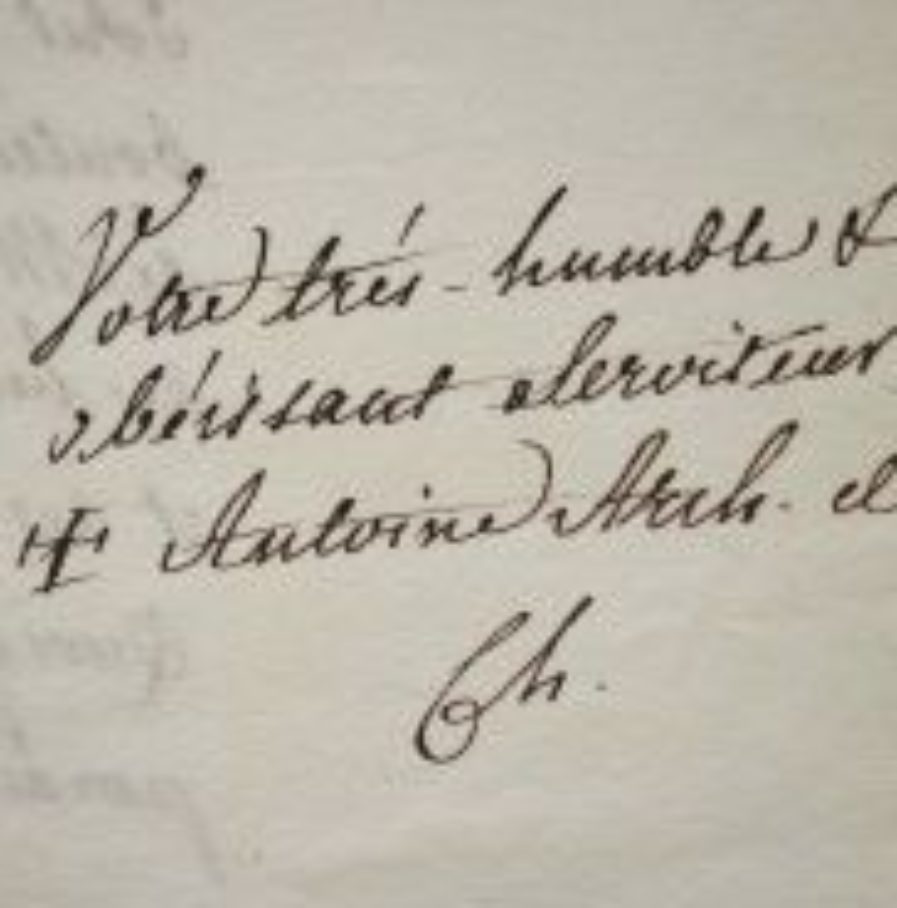 Votre très-humble &
obéissant Serviteur
✠ Antoine Arch. et
Ch.